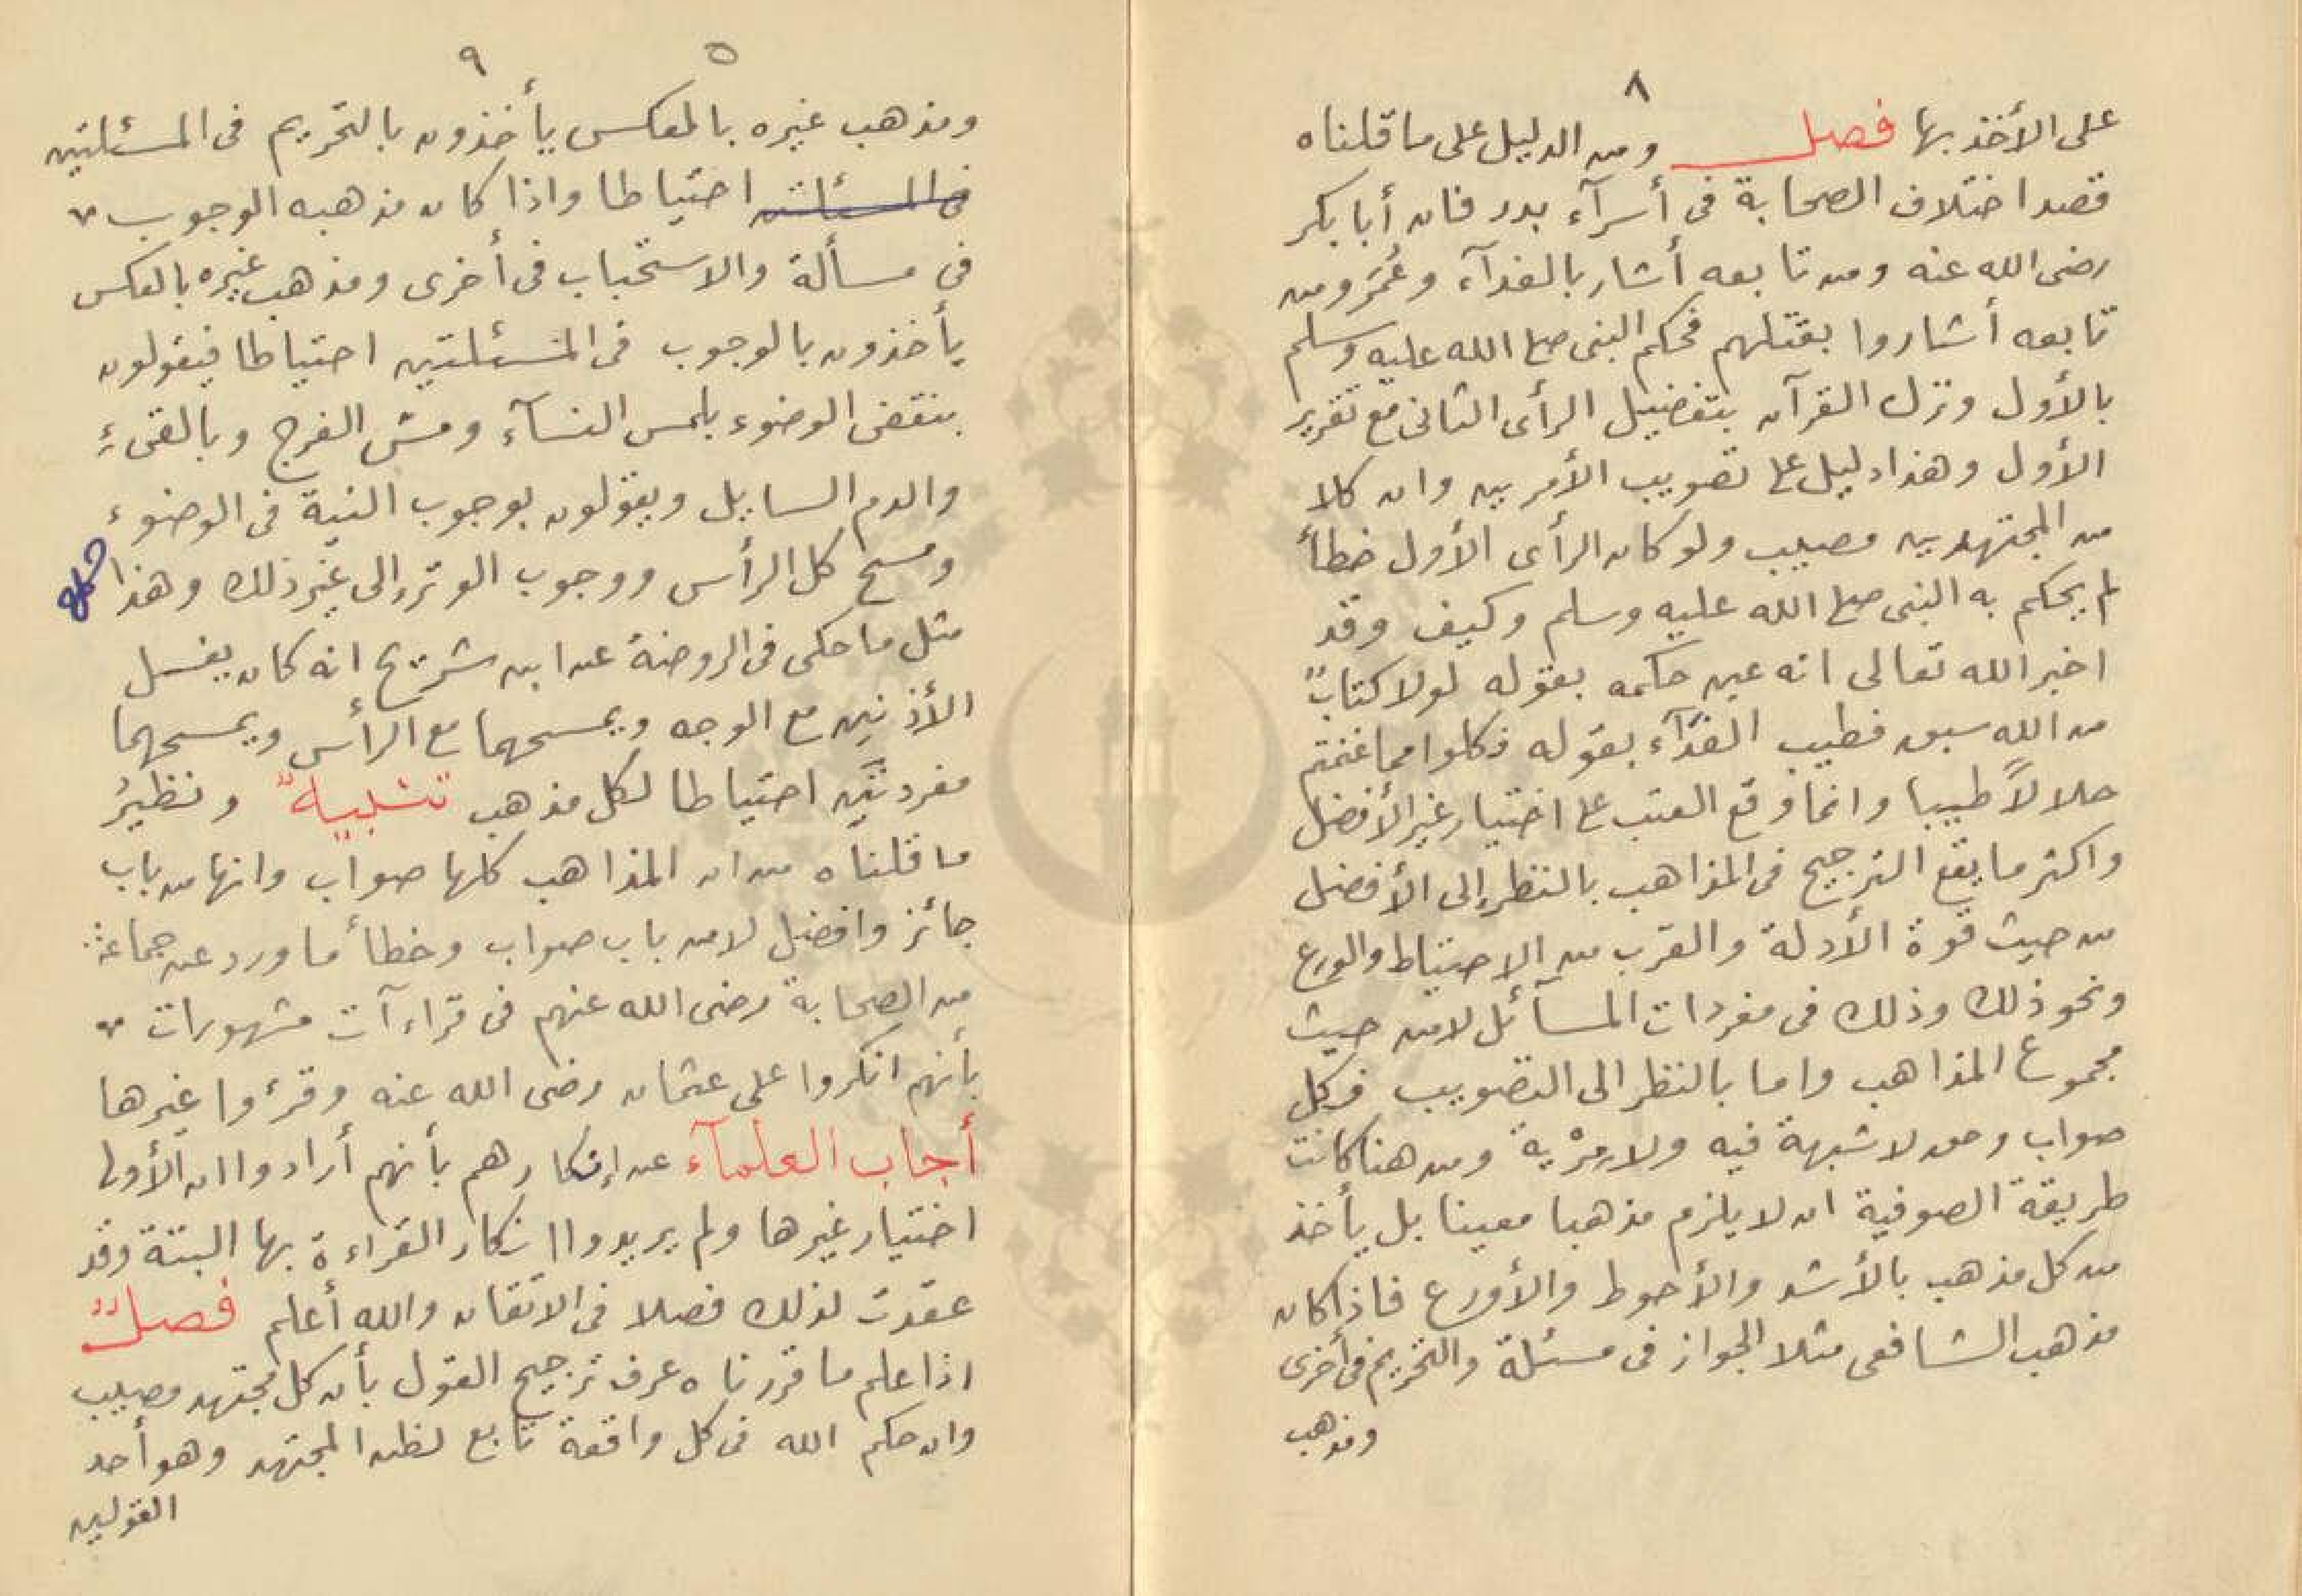 ٨
على الأخذ بها فصل ومن الدليل على ما قلناه
قصد اختلاف الصحابة فى أسرآء بدر فان أبا بكر
رضى الله عنه ومن تابعه أشار بالفدآء وعُمَر ومن
تابعه أشاروا بقتلهم فحكم النبى صلى الله عليه وسلم
بالأول ونزل القرآن بتفضيل الرأى الثانى مع تقرير
الأول وهذا دليل على تصويب الأمرين وان كلا
من المجتهدين مصيب ولو كان الرأى الأول خطأً
لم يحكم به النبى صلى الله عليه وسلم وكيف وقد
اخبر الله تعالى انه عين حكمه بقوله لولا كتابٌ
من الله سبق فطيب الفدآء بقوله فكلوا مما غنمتم
حلالاً طيبا وانما وقع العتب على اختيار غير الأفضل
واكثر ما يقع الترجيح فى المذاهب بالنظر إلى الأفضل
من حيث قوة الأدلة والقرب من الاحتياط والورع
ونحو ذلك وذلك فى مفردات المسآئل لا من حيث
مجموع المذاهب واما بالنظر الى التصويب فكل
صواب وحق لا شبهة فيه ولا مرْية ومن هنا كانت
طريقة الصوفية ان لا يلزم مذهبا معينا بل يأخذ
من كل مذهب بالأشد والأحوط والأورع فاذا كان
مذهب الشافعى مثلا الجواز فى مسئلة والتحريم فى أخرى
ومذهب
٩ ٥
ومذهب غيره بالعكس يأخذون بالتحريم فى المسئلتين
فى المسئلتين احتياطا واذا كان مذهبه الوجوب
فى مسألة والاستحباب فى أخرى ومذهب غيره بالعكس
يأخذون بالوجوب فى المسئلتين احتياطا فيقولون
بنقض الوضوء بلمس النسآء ومسّ الفرج وبالقىءِ
والدم السايل ويقولون بوجوب النية فى الوضوء
ومسح كل الرأس ووجوب الوتر إلى غير ذلك وهذا
مثل ما حكى فى الروضة عن ابن شريح انه كان يغسل
الأذنين مع الوجه ويمسحهما مع الرأس ويمسحهما
مفردتين احتياطا لكل مذهب تنبيهٌ ونظيرُ
ما قلناه من ان المذاهب كلها صواب وانها من باب
جائز وافضل لا من باب صواب وخطأ ما ورد عن جماعة
من الصحابة رضى الله عنهم فى قراءآت مشهورات
بأنهم انكروا على عثمان رضى الله عنه وقرءوا غيرها
أجاب العلمآء عن إنكارهم بأنهم أرادوا ان الأولى
اختيار غيرها ولم يريدوا انكار القراءة بها البتة وقد
عقدت لذلك فصلا فى الاتقان والله أعلم فصلٌ
اذا علم ما قررناه عرف ترجيح القول بأن كل مجتهد مصيب
وان حكم الله فى كل واقعة تابع لظن المجتهد وهو أحد
القولين